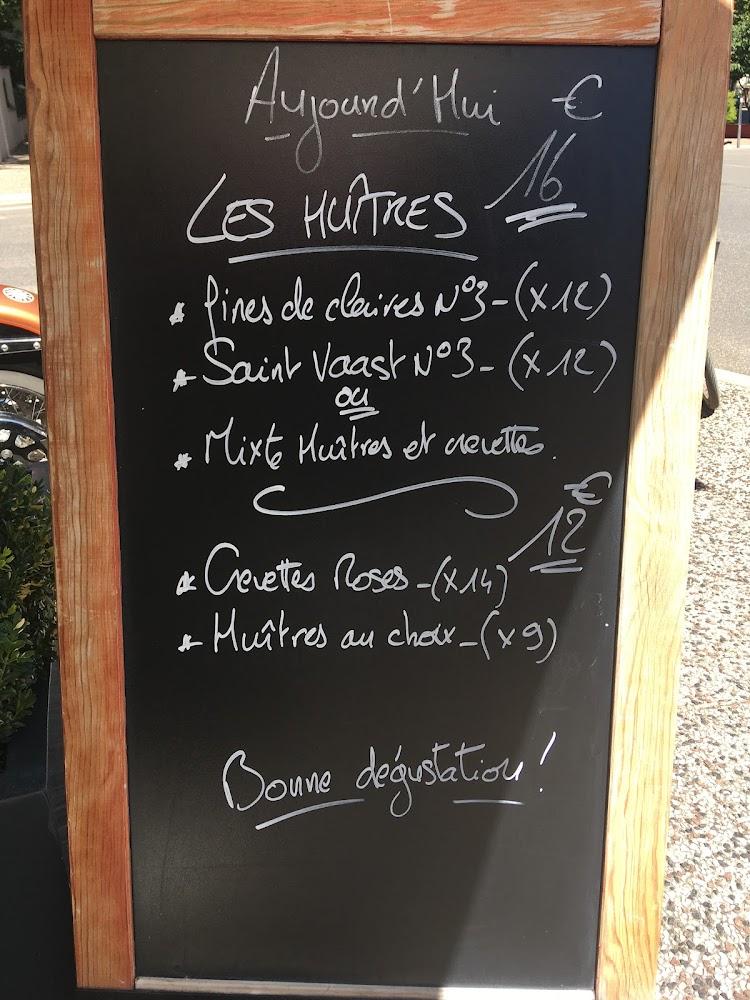 Aujourd'Hui €
LES HUÎTRES 16
* fines de claires N°3 - (x12)
* Saint Vaast N°3 - (x12)
ou
* Mixte Huîtres et crevettes.
€
12
* Crevettes Roses - (x14)
* Huîtres au choix - (x9)
Bonne dégustation !